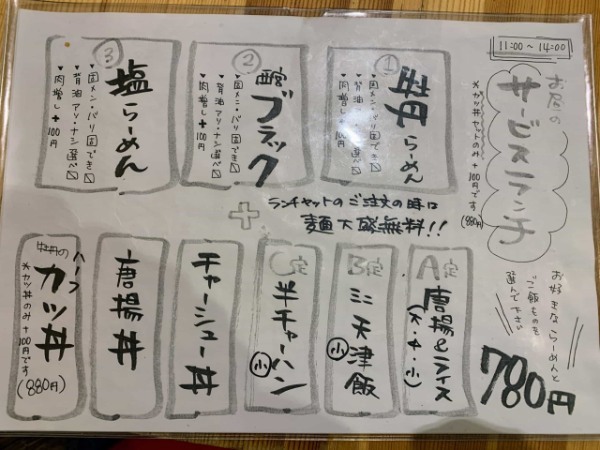 11:00〜14:00
お昼の
サービスランチ
※カツ丼セットのみ+100円です
(880円)
お好きならーめんと
ご飯ものを
選んで下さい
780円
①
牡丹らーめん
▼固メン・バリ固でき☑
▼背油アリ・ナシ選べ☑
▼肉増し+100円
②
西宮ブラック
▼固メン・バリ固でき☑
▼背油アリ・ナシ選べ☑
▼肉増し+100円
③
塩らーめん
▼固メン・バリ固でき☑
▼背油アリ・ナシ選べ☑
▼肉増し+100円
+
ランチセットのご注文の時は
麺大盛無料!!
A定
唐揚&ライス
(大・中・小)
B定
ミニ天津飯
小
C定
半チャーハン
小
チャーシュー丼
唐揚丼
ハーフ
カツ丼
※カツ丼のみ+100円です
(880円)